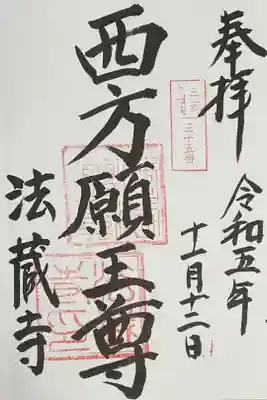 奉拝
三十五番
令和五年
十一月十二日
西方願王尊
法蔵寺